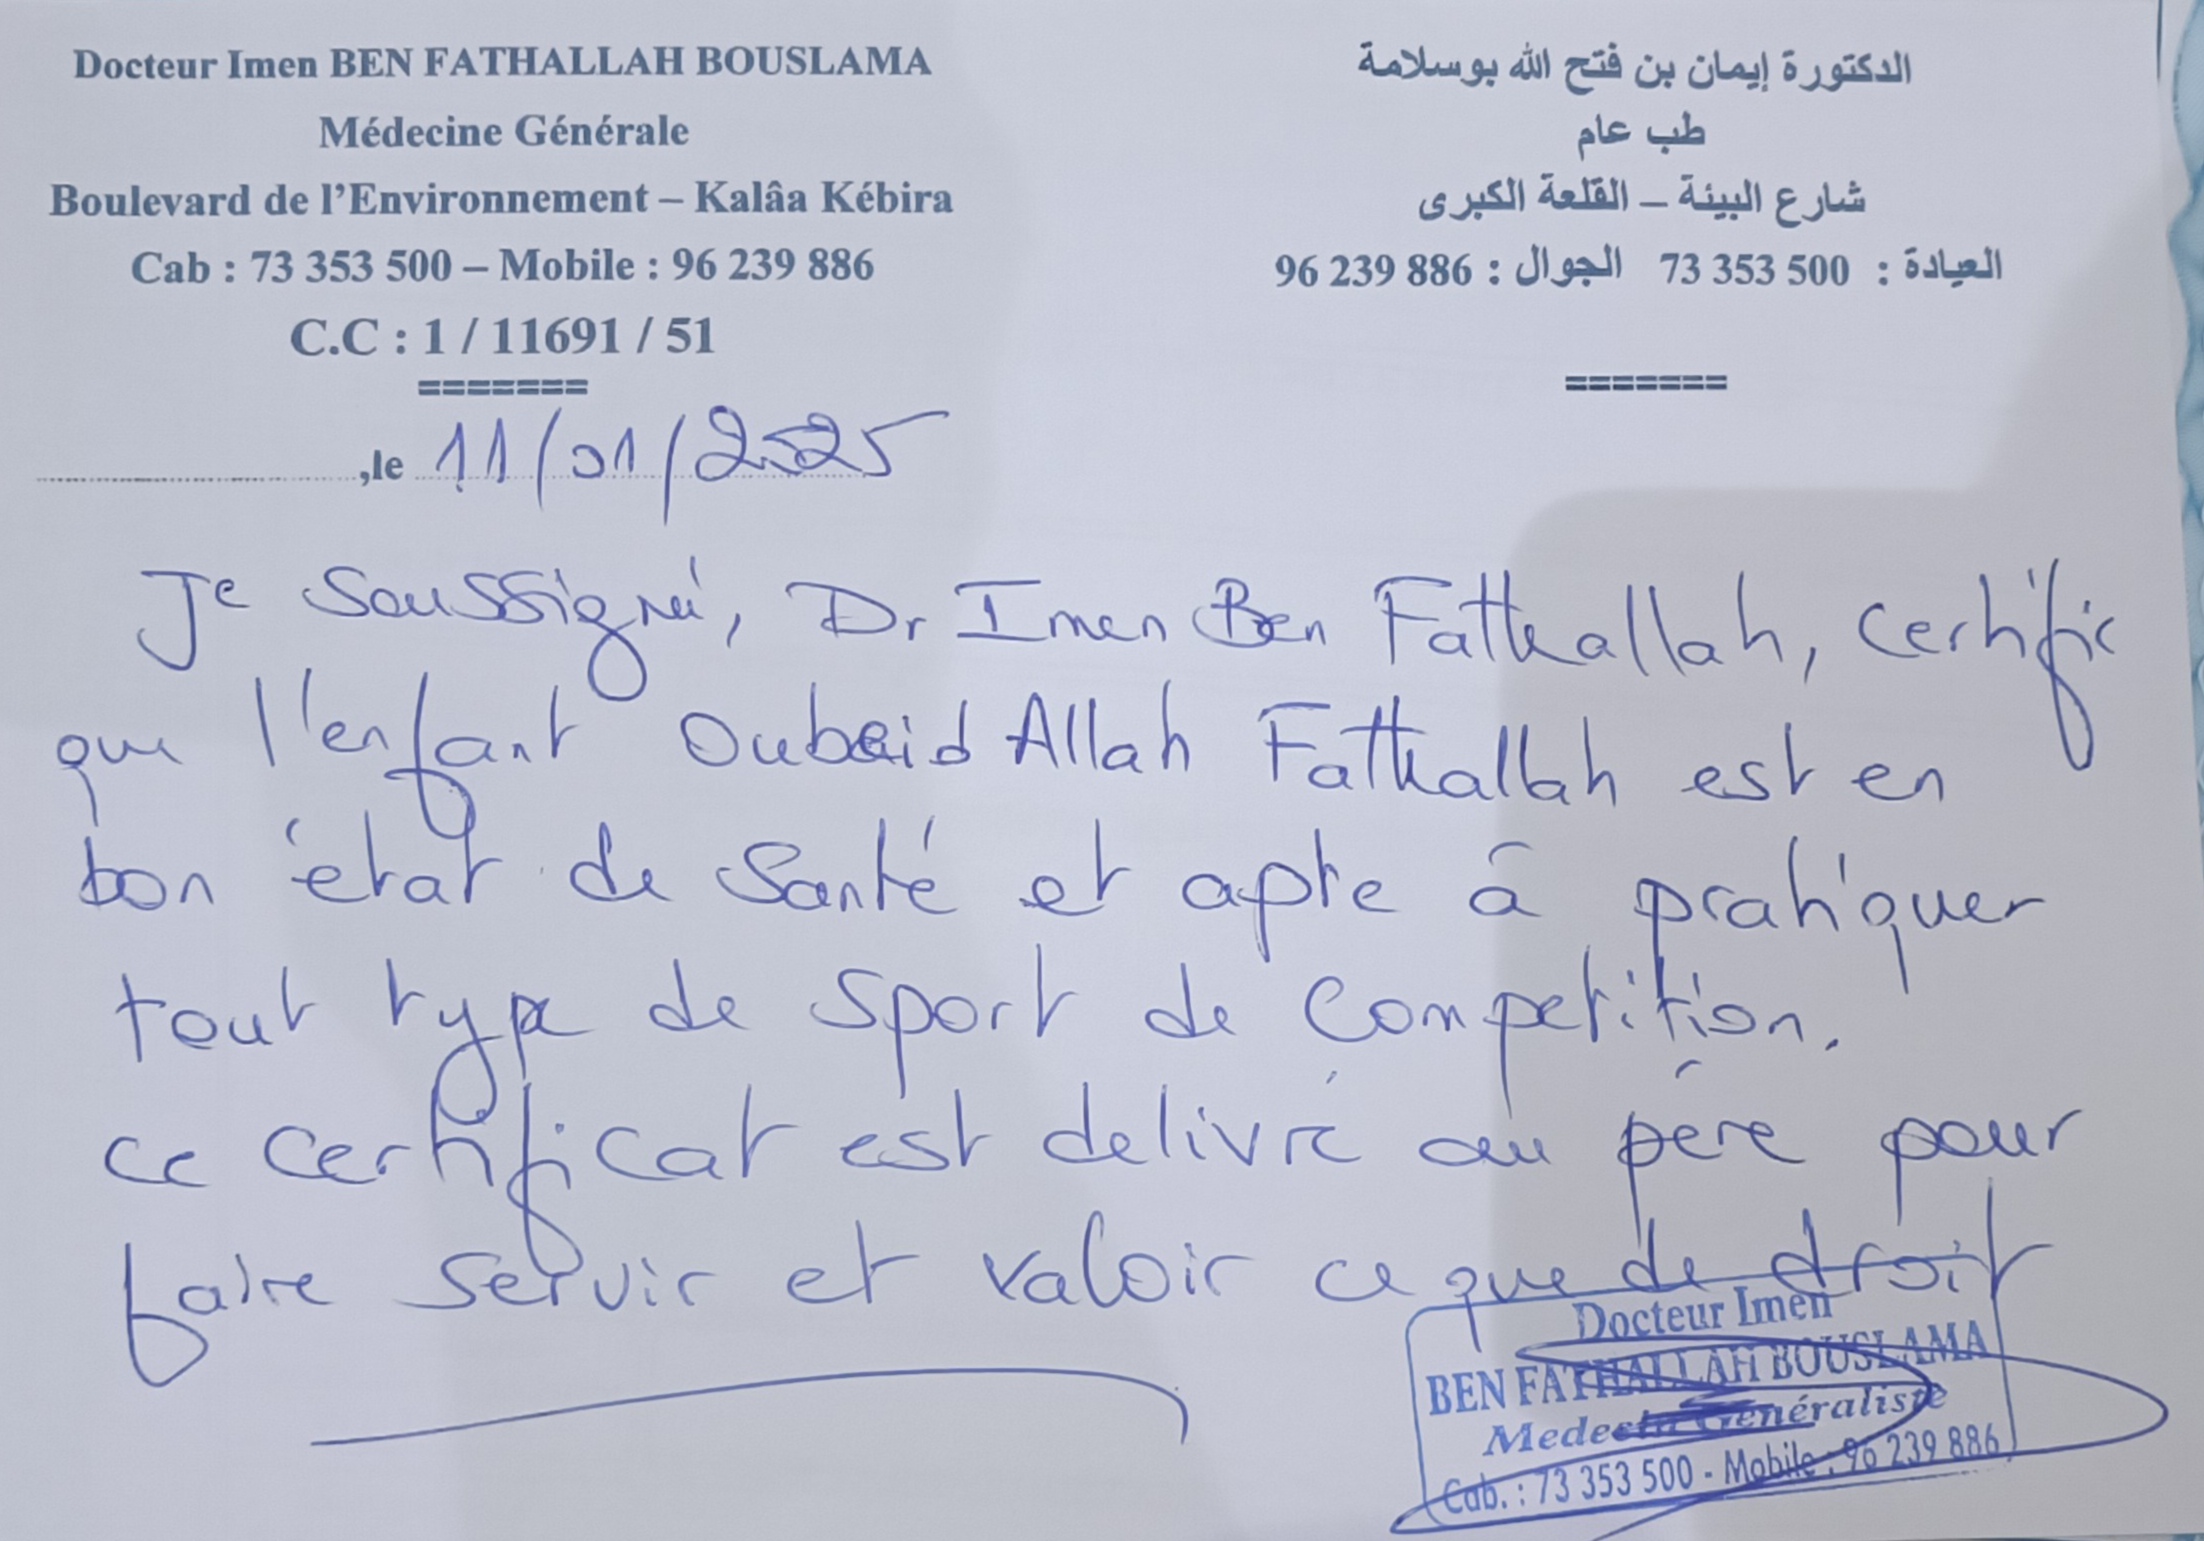 Docteur Imen BEN FATHALLAH BOUSLAMA
Médecine Générale
Boulevard de l'Environnement – Kalâa Kébira
Cab : 73 353 500 – Mobile : 96 239 886
C.C : 1 / 11691 / 51
=======
الدكتورة إيمان بن فتح الله بوسلامة
طب عام
شارع البيئة – القلعة الكبرى
العيادة : 73 353 500 الجوال : 96 239 886
=======
,le 11/01/2025
Je soussigné, Dr Imen Ben Fathallah, certifie
que l'enfant Oubeid Allah Fathallah est en
bon état de santé et apte à pratiquer
tout type de sport de competition.
ce certificat est delivré au père pour
faire servir et valoir ce que de droit
Docteur Imen
BEN FATHALLAH BOUSLAMA
Medecin Généraliste
Cab. : 73 353 500 - Mobile : 96 239 886